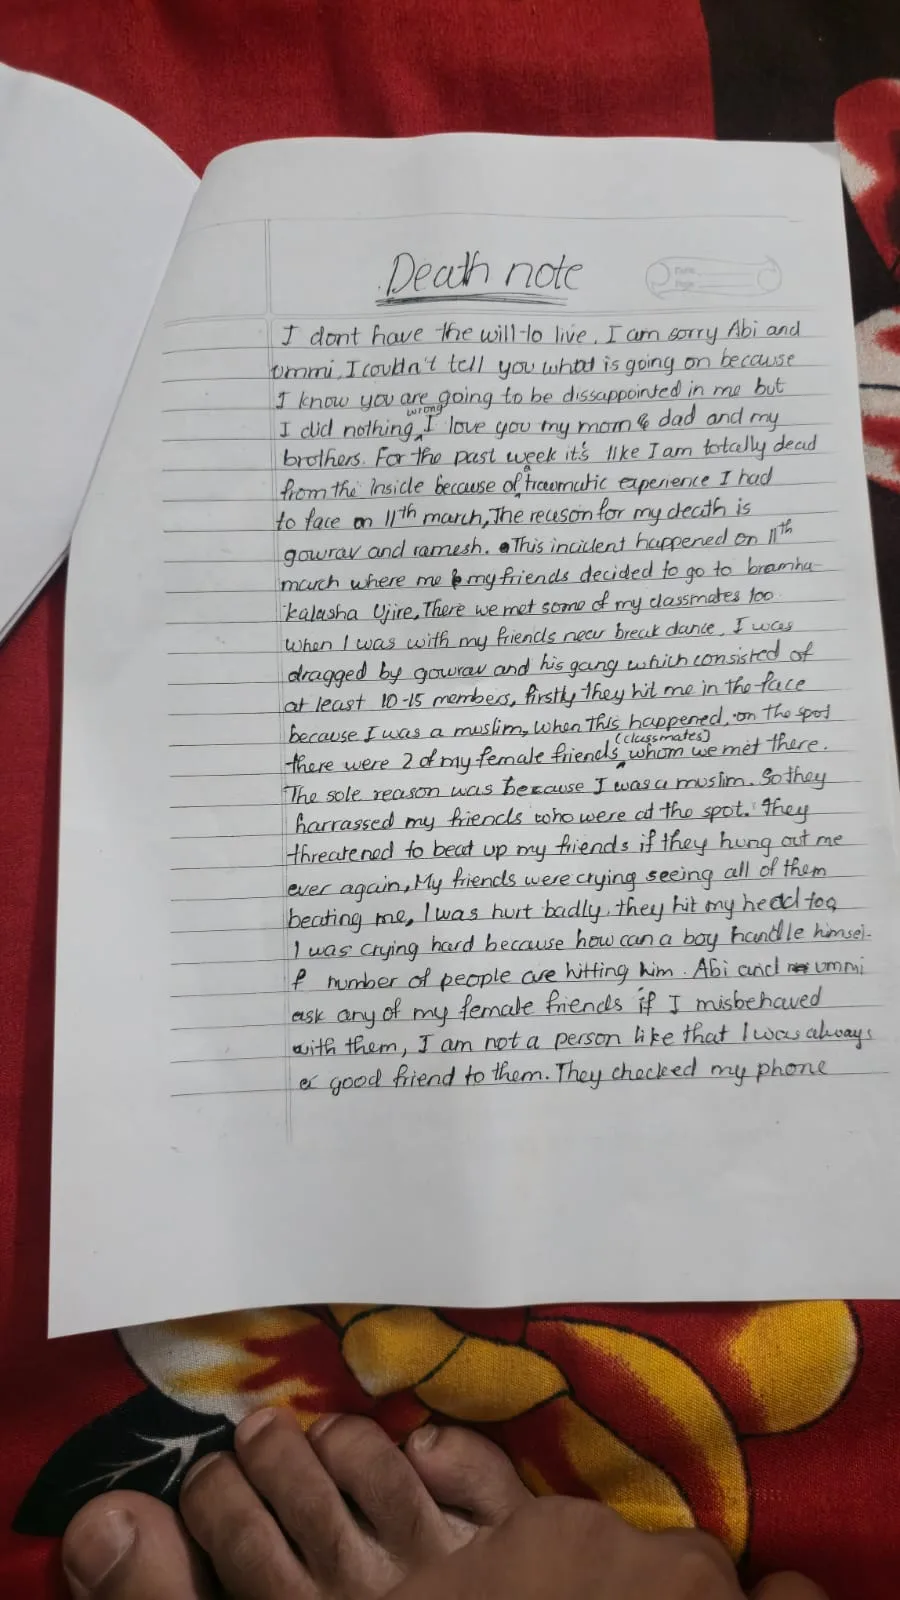 Death note
Date
Page
I dont have the will to live, I am sorry Abi and
ummi, I couldn't tell you what is going on because
I know you are going to be dissappointed in me but
I did nothing wrong, I love you my mom & dad and my
brothers. For the past week it's like I am totally dead
from the inside because of a traumatic experience I had
to face on 11th march, The reason for my death is
gowrav and ramesh. This incident happened on 11th
march where me & my friends decided to go to bramha
kalasha Ujire, There we met some of my classmates too.
When I was with my friends near break dance, I was
dragged by gowrav and his gang which consisted of
at least 10-15 members, firstly they hit me in the face
because I was a muslim, When this happened, on the spot
there were 2 of my female friends (classmates) whom we met there.
The sole reason was because I was a muslim. So they
harrassed my friends who were at the spot. They
threatened to beat up my friends if they hung out me
ever again, My friends were crying seeing all of them
beating me, I was hurt badly, they hit my head too,
I was crying hard because how can a boy handle himsel-
f number of people are hitting him. Abi and ummi
ask any of my female friends if I misbehaved
with them, I am not a person like that I was always
a good friend to them. They checked my phone